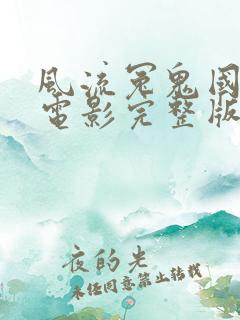 風流冤鬼國
電影完整版
夜的光
未經同意禁止轉載